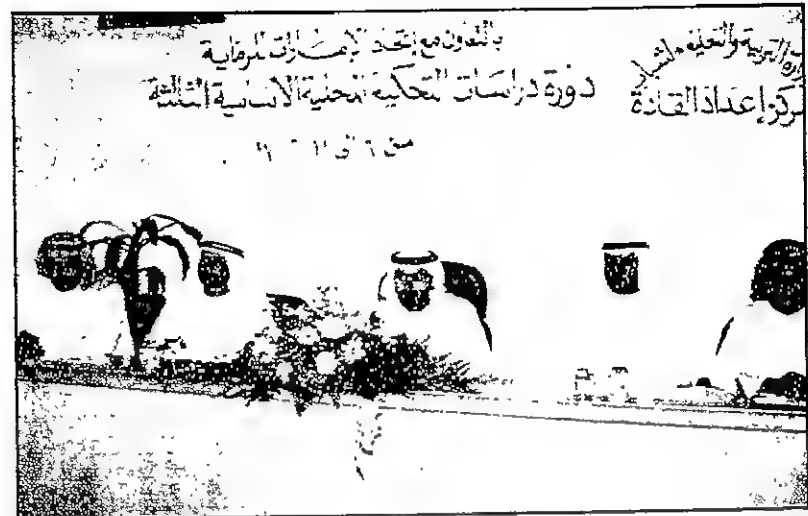 وزارة التربية والتعليم والشباب
مركز إعداد القادة
بالتعاون مع إتحاد الإمارات للرماية
دورة دراسات التحكيم المحلية الأساسية الثالثة
من ٦ الى